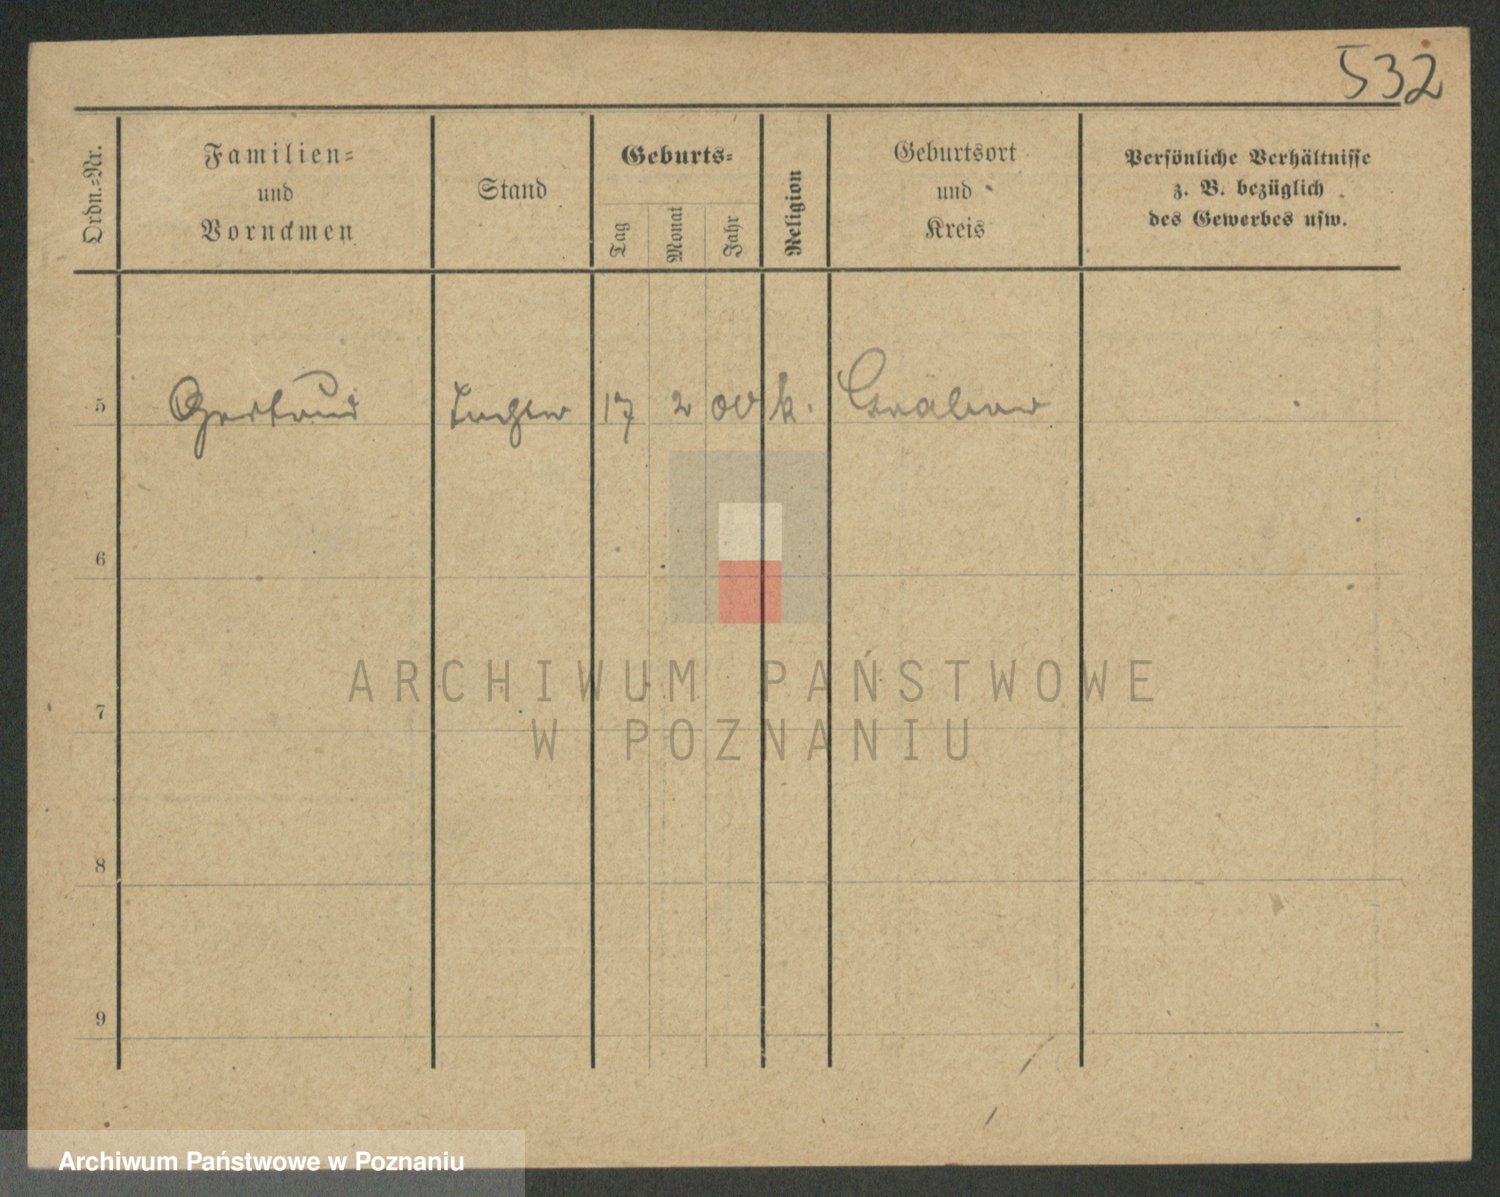 532
Ordn.-Nr.
Familien-
und
Vornamen
Stand
Geburts-
Tag
Monat
Jahr
Religion
Geburtsort
und
Kreis
Persönliche Verhältnisse
z. B. bezüglich
des Gewerbes usw.
5 Gertrud Tochter 17 2 00 k. Grabow
6
7
8
9
ARCHIWUM PAŃSTWOWE
W POZNANIU
Archiwum Państwowe w Poznaniu